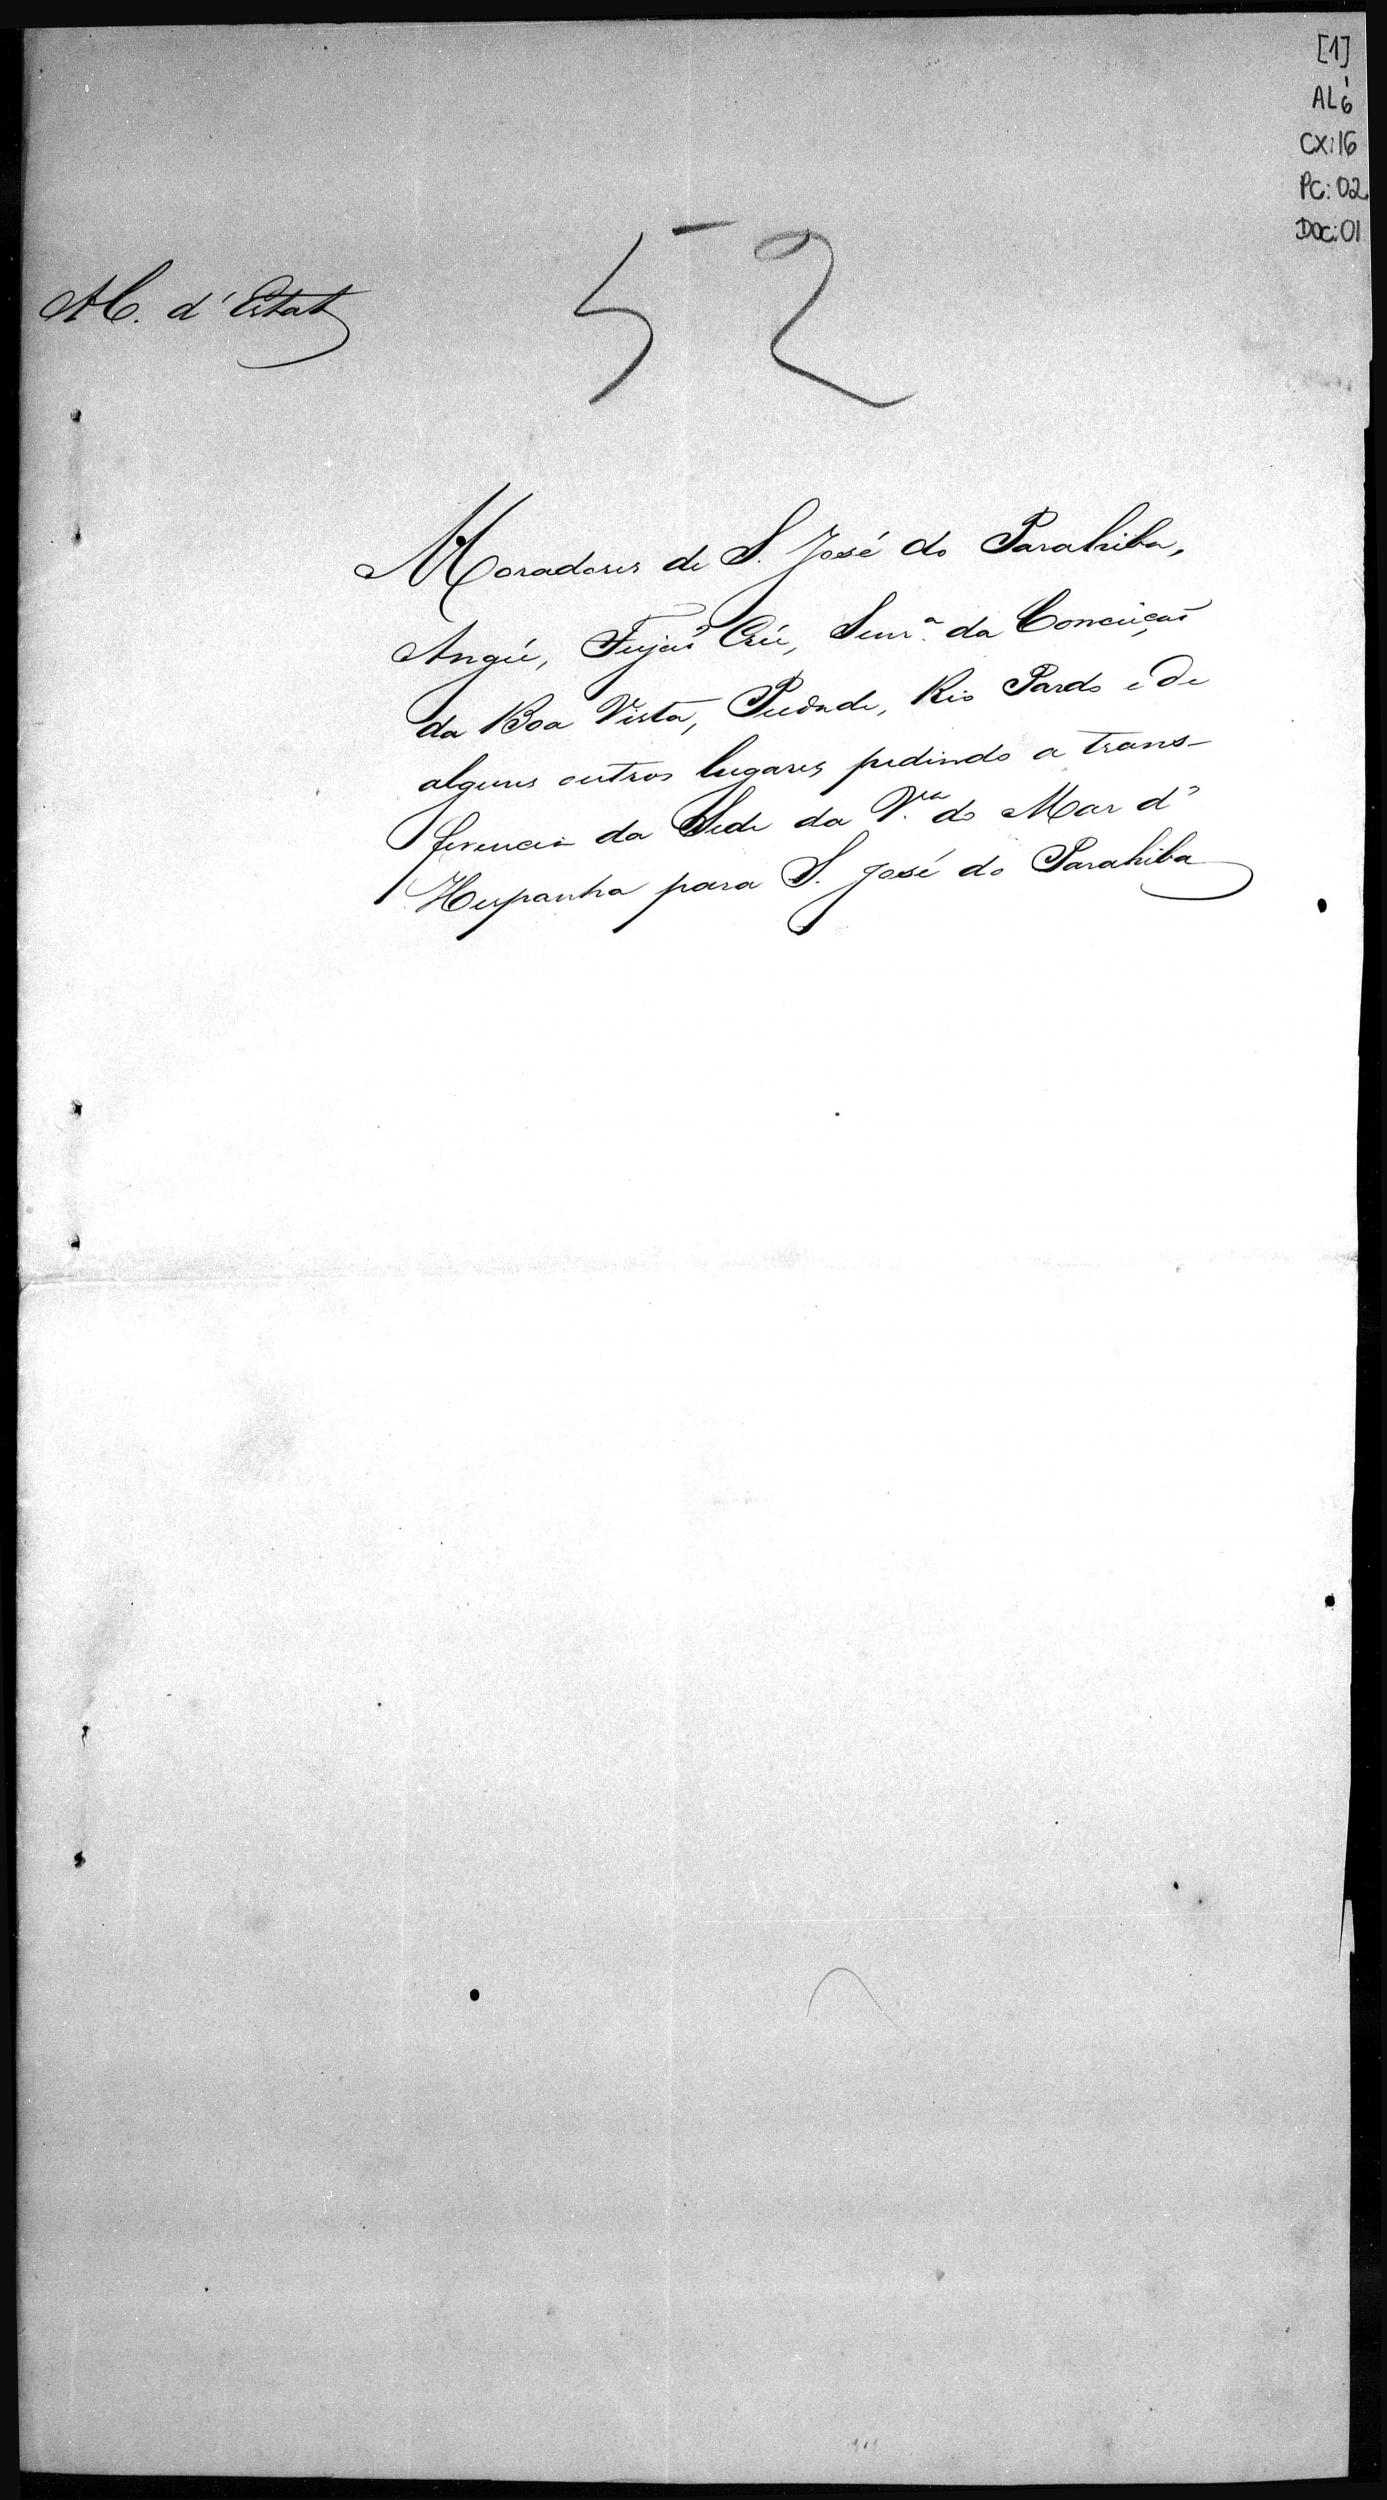 [1]
AL 6
CX: 16
PC: 02
Doc: 01
52
C. d'Estat
Moradores de S. José do Parahiba,
Angú, Feijaõ Crú, Senr.ª da Conceiçaõ
da Boa Vista, Piedade, Rio Pardo e de
alguns outros lugares pedindo a trans-
ferencia da Sede da V.ª do Mar d'
Hespanha para S. José do Parahiba